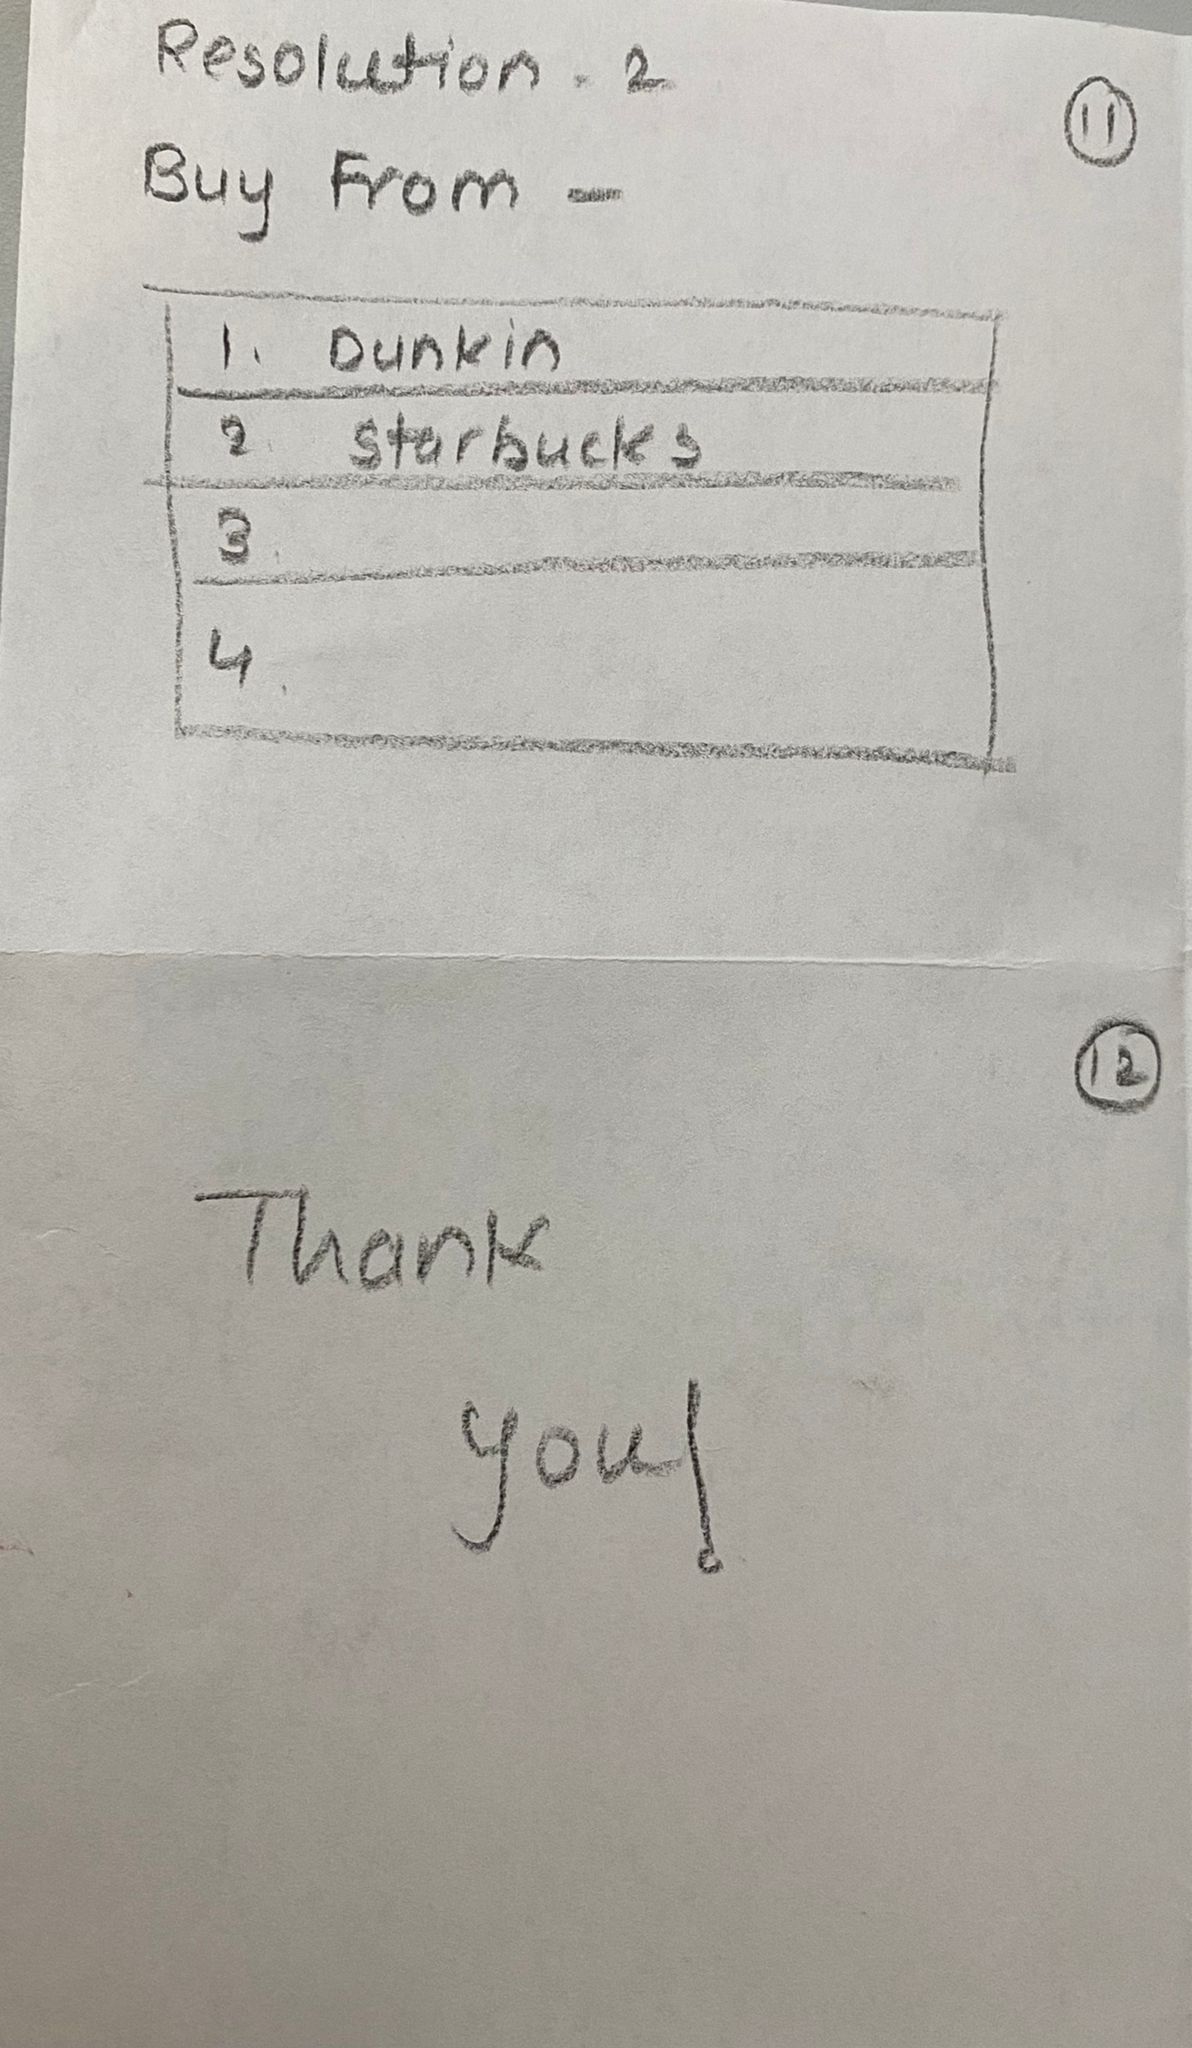 Resolution . 2
11
Buy From -
1. Dunkin
2. Starbucks
3.
4.
12
Thank
you!